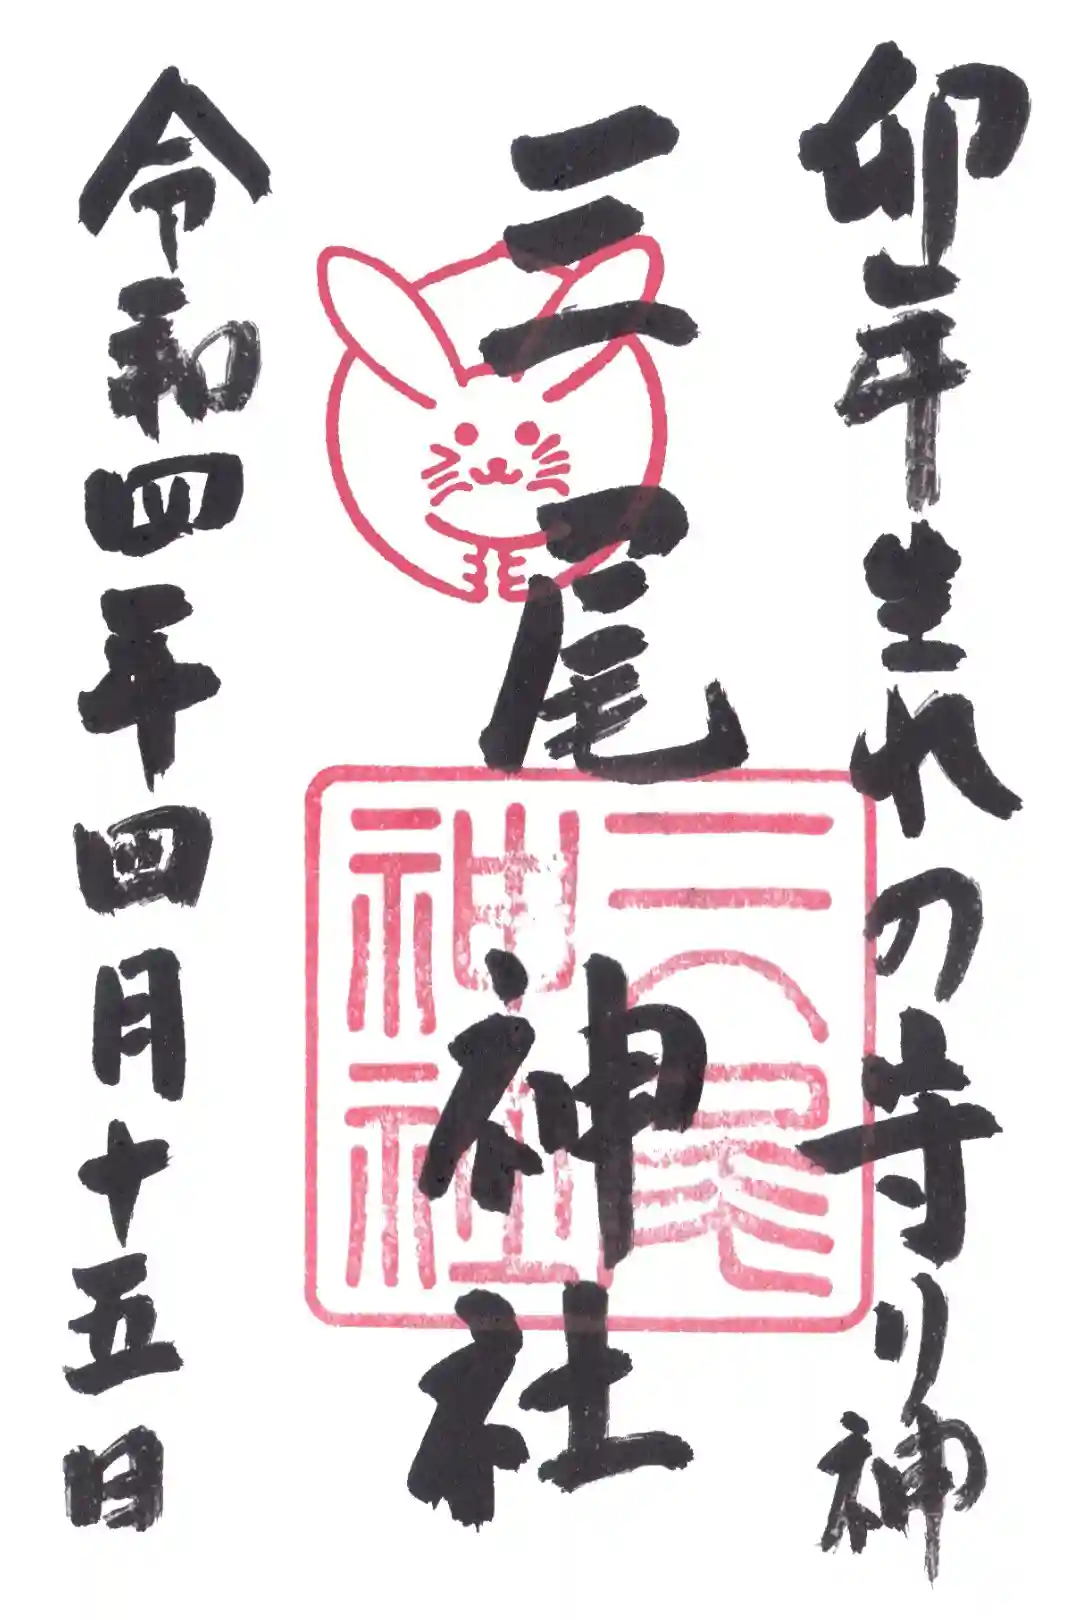 卯年生れの守り神
三尾神社
三尾
神社
令和四年四月十五日